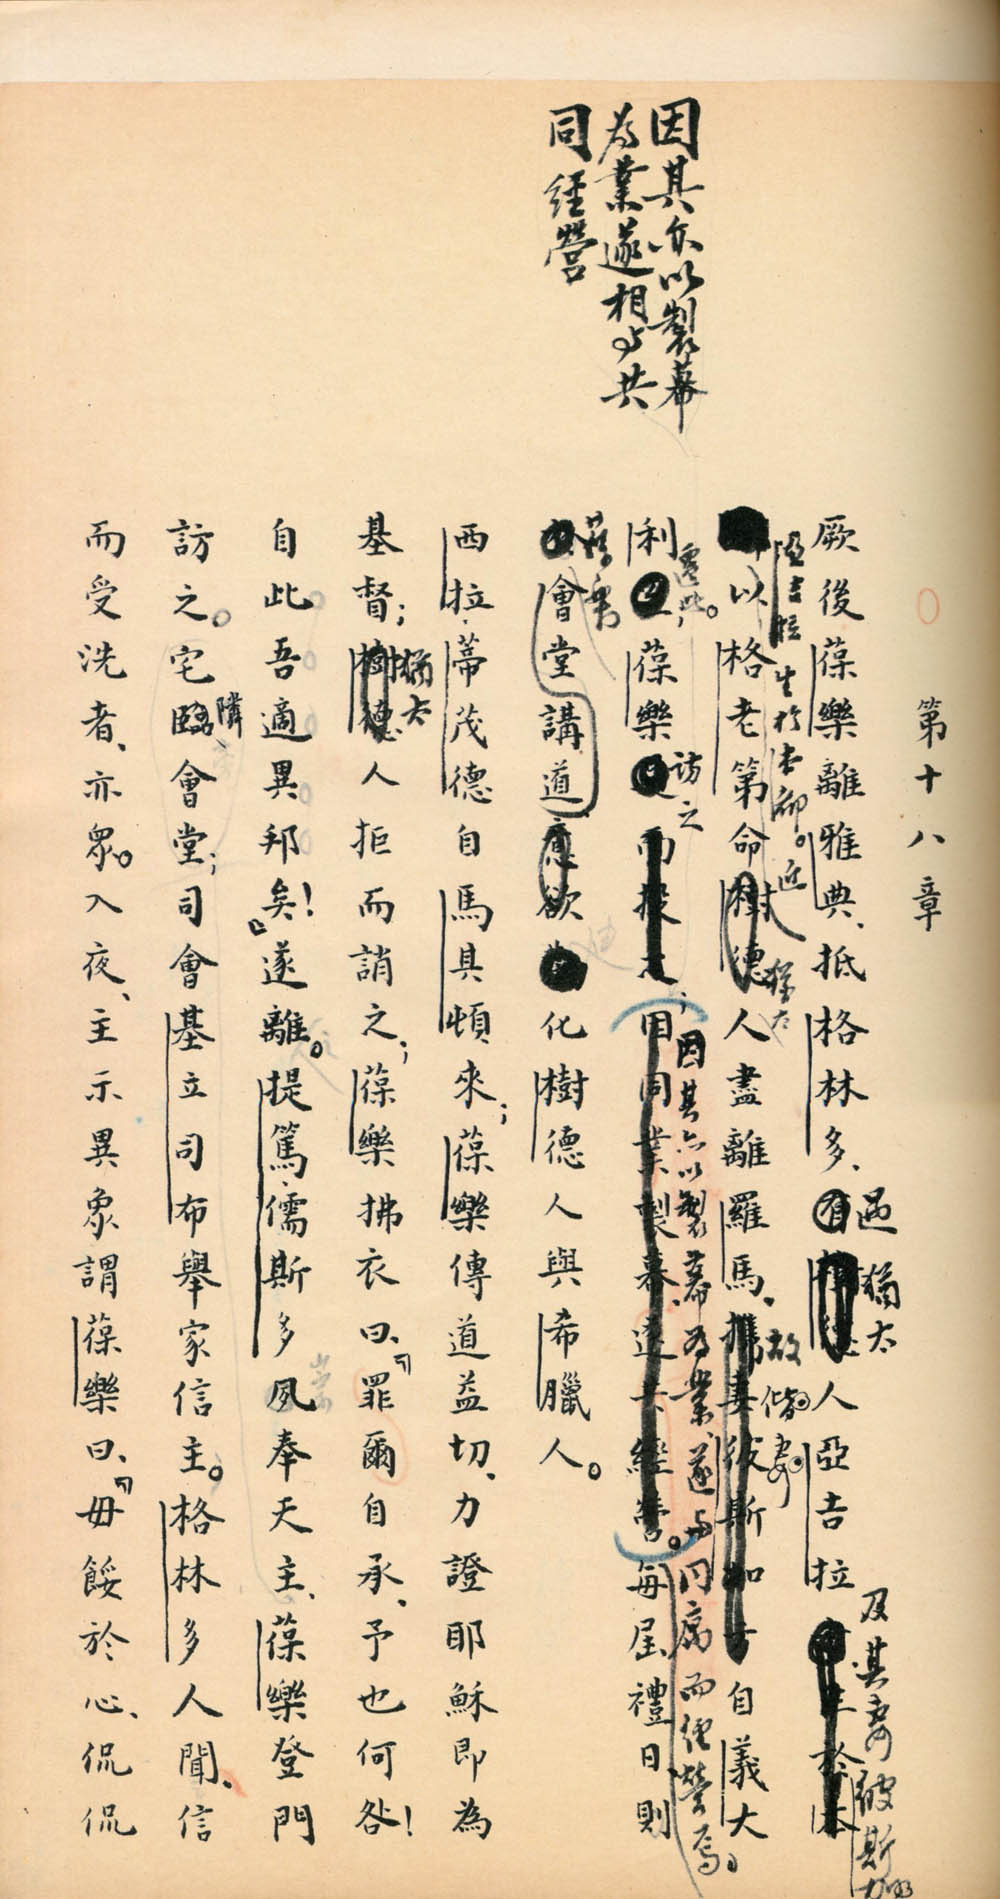 因其亦以製幕
為業遂相与共
同經營
第十八章
厥後葆樂離雅典、抵格林多、遇猶太人亞吉拉及其妻彼斯
亞吉拉生於本都。近
以格老第命猶太人盡離羅馬、故偕妻自義大
利遷此。葆樂訪之
因其亦以製幕為業遂与同寓而經營焉。
每屆禮日、則
藉乘
會堂講道欲化樹德人與希臘人。
西拉、蒂茂德自馬具頓來；葆樂傳道益切、力證耶穌即為
基督；猶太人拒而誚之；葆樂拂衣曰、『罪爾自承、予也何咎！
自此吾適異邦矣！』遂離。提篤儒斯多夙奉天主、葆樂登門
訪之。宅隣會堂；司會基立司布舉家信主。格林多人聞、信
而受洗者、亦眾。入夜、主示異象謂葆樂曰、『毋餒於心、侃侃